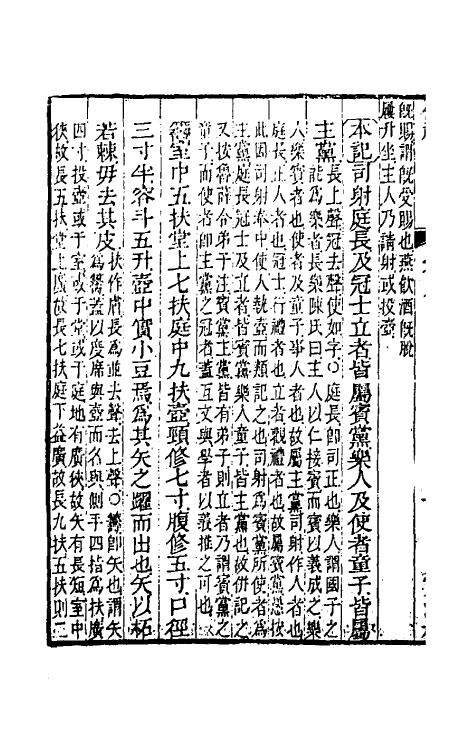 既賜謂既受賜也燕飲酒既脫
屨升坐主人乃請射或投壺
本記司射庭長及冠士立者皆屬賓黨樂人及使者童子皆屬
主黨
長上聲冠去聲使如字○庭長即司正也樂人謂國子之
能為樂者長樂陳氏曰主人以仁接賓而賓以義成之樂
人樂賓者也使者及童子事人者也故屬主黨司射作人者也
庭長正人者也冠士行禮者也立者觀禮者也故屬賓黨愚按
此因司射奉中使人執壺而類記之也司射為賓黨所使者為
主黨庭長冠士及立者皆賓黨樂人童子皆主黨也故併記之
又按魯辭令弟子注賓黨主黨皆有弟子則立者乃謂賓黨之
童子而使者即主黨之冠者蓋互文與學者以義推之可也
籌室中五扶堂上七扶庭中九扶壺頸修七寸腹修五寸口徑
三寸半容斗五升壺中實小豆焉為其矢之躍而出也矢以柘
若棘毋去其皮
扶作膚長為並去聲去上聲○籌即矢也謂矢
為籌蓋以度席與壺而名與側手四指為扶廣
四寸投壺或于室或于堂或于庭地有廣狹故矢有長短室中
狹故長五扶堂上廣故長七扶庭下益廣故長九扶五扶則二